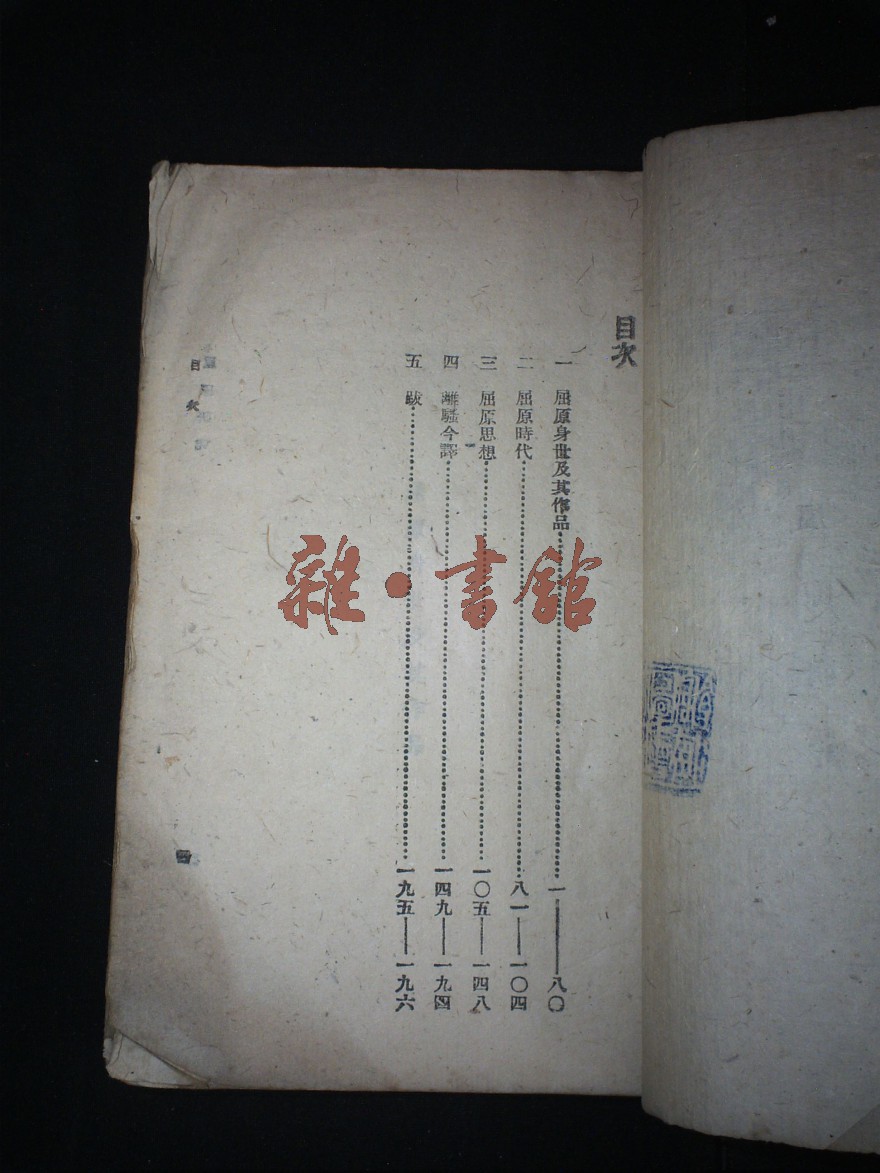 目次
一　屈原身世及其作品………一——八〇
二　屈原時代………八一——一〇四
三　屈原思想………一〇五——一四八
四　離騷今譯………一四九——一九四
五　跋………一九五——一九六
目次
雜·書館